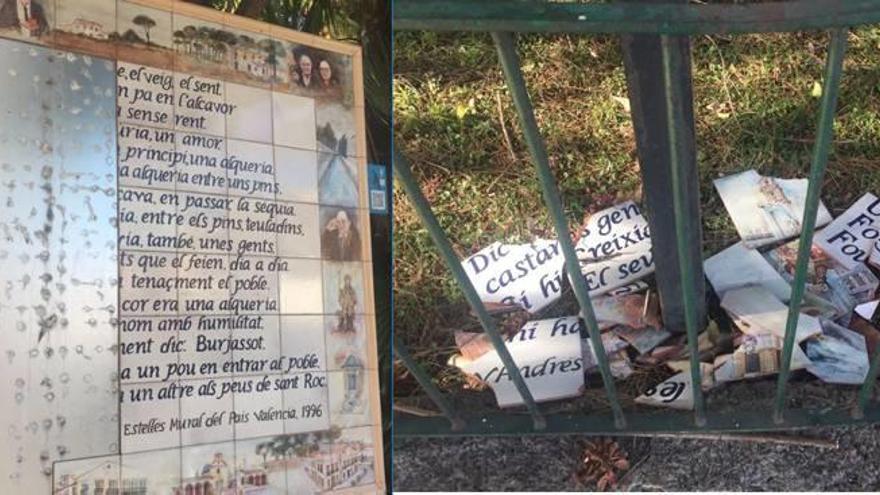 e, el veig, el sent.
n pa en l'alcavor
a sense rent.
uria, un amor.
principi, una alqueria,
a alqueria entre uns pins,
cava, en passar la sequia
ia, entre els pins, teuladins,
ria, també, unes gents,
ts que el feien, dia a dia
tenaçment el poble.
cor era una alqueria
nom amb humilitat.
ment dic: Burjassot.
a un pou en entrar al poble,
a un altre als peus de sant Roc.
Estellés Mural del País Valencià, 1996
Dic
castan
Si hi
gen
creixia
El seu
mi ha
v'Andrés
Fou
Fou